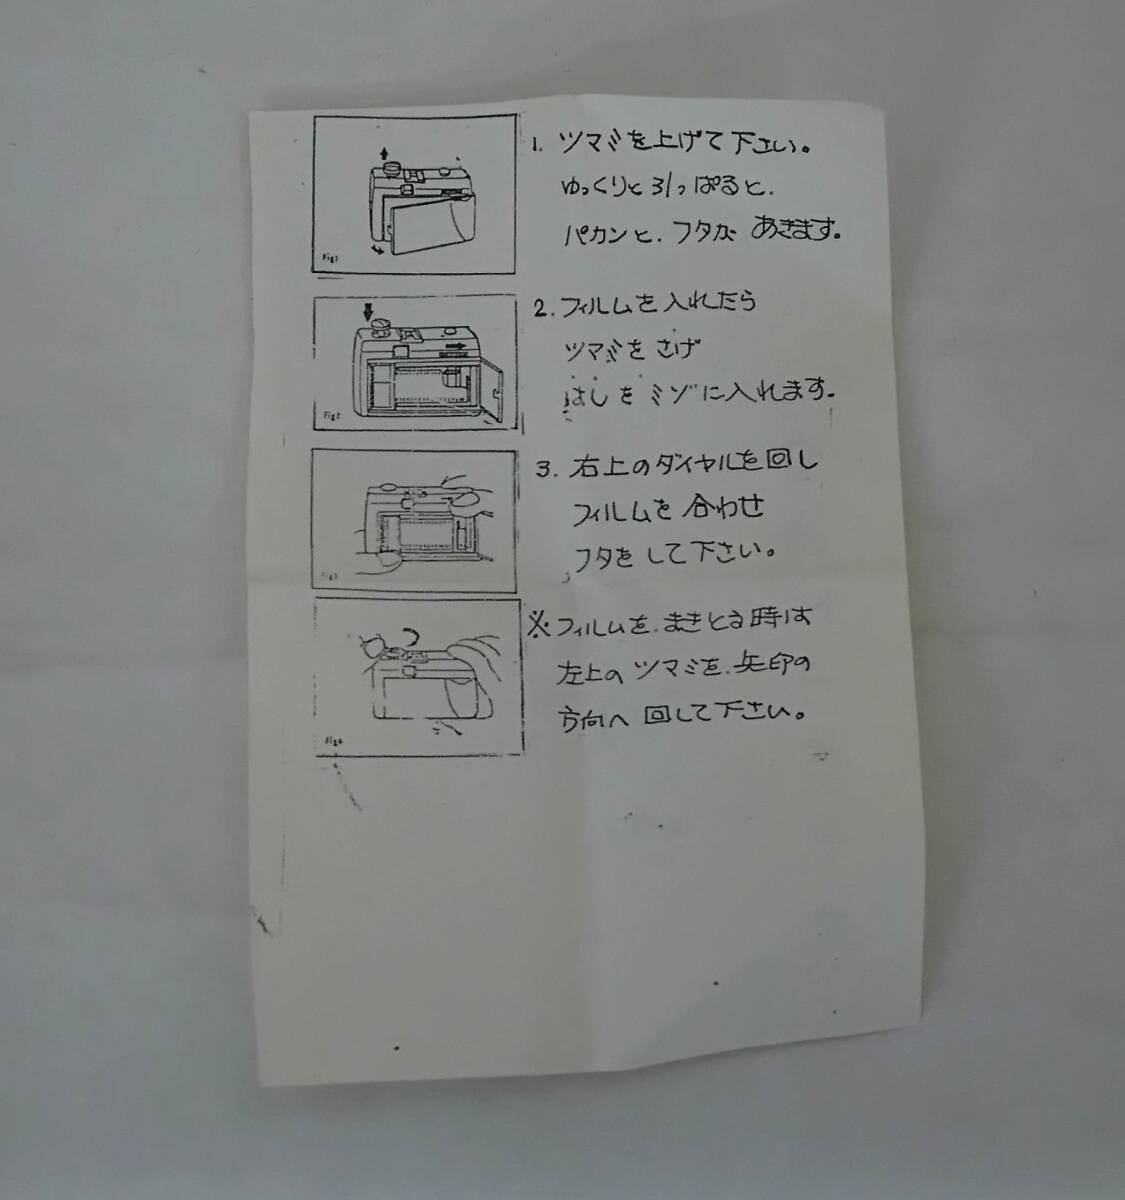 1. ツマミを上げて下さい。
ゆっくりと引っぱると.
パカンと.フタが あきます。
Fig1
2. フィルムを入れたら
ツマミを さげ
はしを ミゾに入れます。
Fig2
3. 右上のダイヤルを回し
フィルムを 合わせ
フタを して下さい。
Fig3
※フィルムを.まきとる時は
左上の ツマミを.矢印の
方向へ 回して下さい。
Fig4